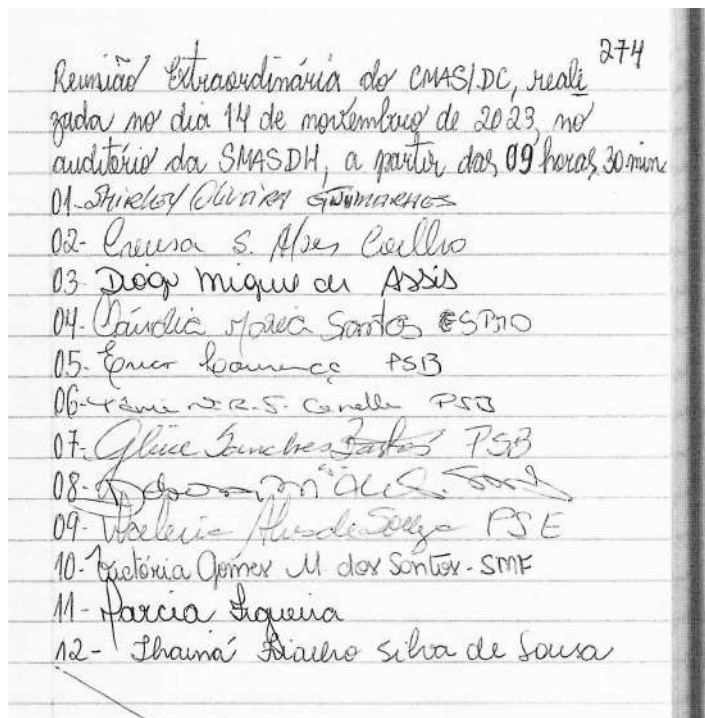 274
Reunião Extraordinária do CMAS/DC, reali
zada no dia 14 de novembro de 2023, no
auditório da SMASDH, a partir das 09 horas 30 min
01- Shirley Oliveira Guimarães
02- Creusa S. Alves Coelho
03- Diogo Miguel de Assis
04- Cláudia Maria Santos
05- Lourenço PSB
06- N. R. S. PSB
07- Sanches Bastos PSB
08-
09- Alves de Souza PSE
10- Victória Gomes M. dos Santos - SMF
11- Marcia Siqueira
12- Thainá Silva de Sousa